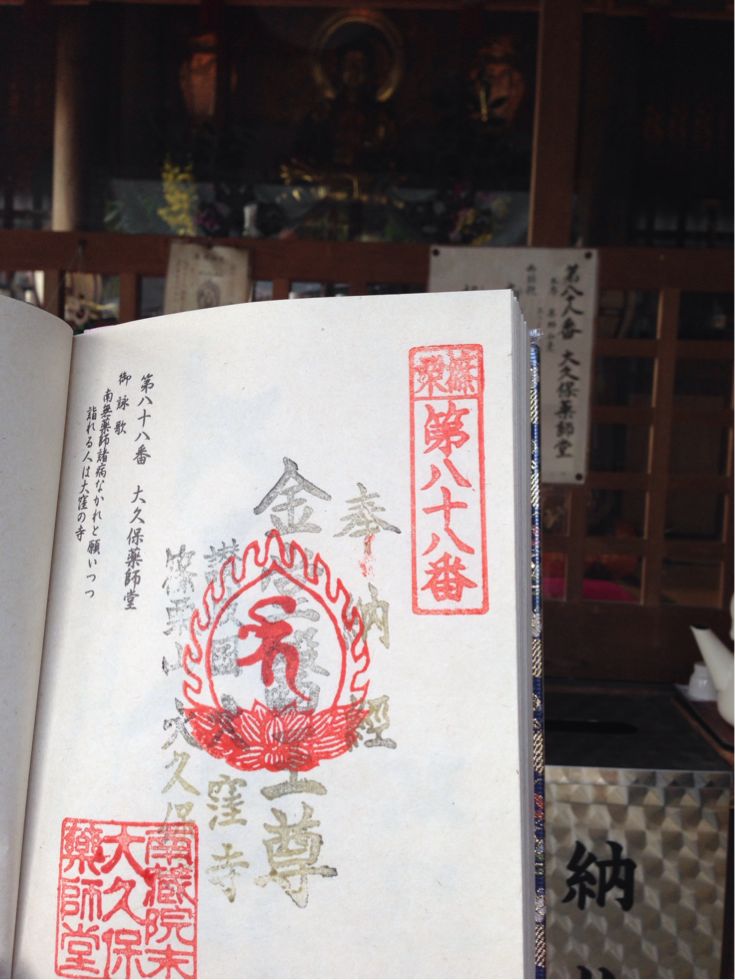 篠栗
第八十八番
奉納經
讃岐国 大窪寺
篠栗山 大久保
第八十八番 大久保薬師堂
御詠歌
南無薬師諸病なかれと願いつつ
詣れる人は大窪の寺
南蔵院末
大久保
藥師堂
第八十八番 大久保薬師堂
納